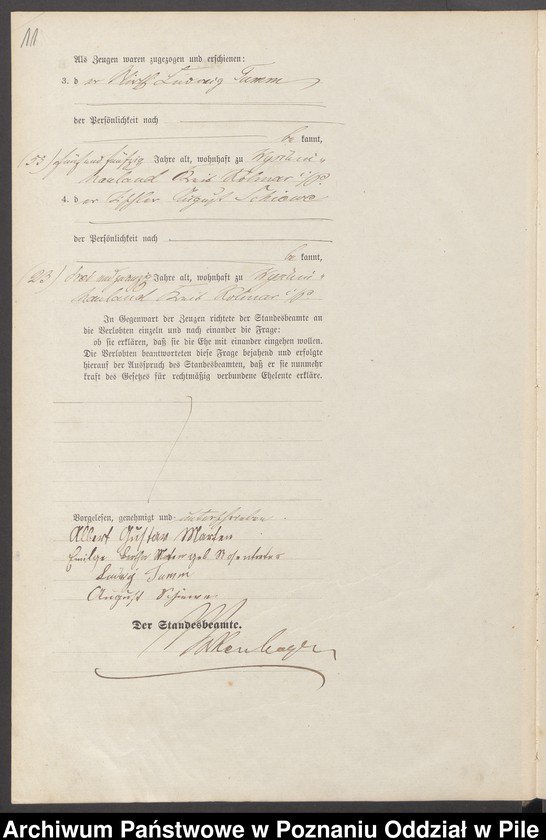 11
Als Zeugen waren zugezogen und erschienen:
3. d er Wirth Ludwig Tamm
der Persönlichkeit nach
be kannt,
(53) fünfzig Jahre alt, wohnhaft zu
Kreis Kolmar i/P.
4. d er August Schiewe
der Persönlichkeit nach
be kannt,
23) drei und zwanzig Jahre alt, wohnhaft zu
Kreis Kolmar i/P.
In Gegenwart der Zeugen richtete der Standesbeamte an
die Verlobten einzeln und nach einander die Frage:
ob sie erklären, daß sie die Ehe mit einander eingehen wollen.
Die Verlobten beantworteten diese Frage bejahend und erfolgte
hierauf der Ausspruch des Standesbeamten, daß er sie nunmehr
kraft des Gesetzes für rechtmäßig verbundene Eheleute erkläre.
Vorgelesen, genehmigt und unterschrieben
Albert Gustav Märten
geb. Rosentreter
Ludwig Tamm
August Schiewe
Der Standesbeamte.
Archiwum Państwowe w Poznaniu Oddział w Pile